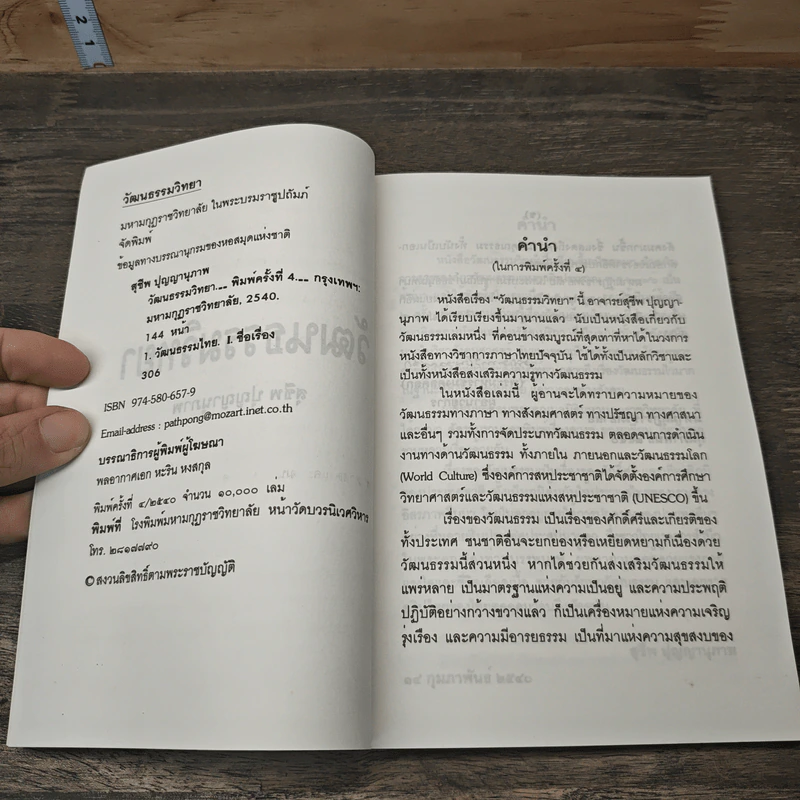 2
1
วัฒนธรรมวิทยา
มหามกุฏราชวิทยาลัย ในพระบรมราชูปถัมภ์
จัดพิมพ์
ข้อมูลทางบรรณานุกรมของหอสมุดแห่งชาติ
สุชีพ ปุญญานุภาพ
วัฒนธรรมวิทยา.-- พิมพ์ครั้งที่ 4.-- กรุงเทพฯ:
มหามกุฏราชวิทยาลัย, 2540.
144 หน้า
1. วัฒนธรรมไทย. I. ชื่อเรื่อง
306
ISBN 974-580-657-9
Email-address : pathpong@mozart.inet.co.th
บรรณาธิการผู้พิมพ์ผู้โฆษณา
พลอากาศเอก หะริน หงสกุล
พิมพ์ครั้งที่ ๔/๒๕๔๐ จำนวน ๑๐,๐๐๐ เล่ม
พิมพ์ที่ โรงพิมพ์มหามกุฏราชวิทยาลัย หน้าวัดบวรนิเวศวิหาร
โทร. ๒๘๑๗๗๙๐
© สงวนลิขสิทธิ์ตามพระราชบัญญัติ
คำนำ
(ในการพิมพ์ครั้งที่ ๔)
หนังสือเรื่อง “วัฒนธรรมวิทยา” นี้ อาจารย์สุชีพ ปุญญา-
นุภาพ ได้เรียบเรียงขึ้นมานานแล้ว นับเป็นหนังสือเกี่ยวกับ
วัฒนธรรมเล่มหนึ่ง ที่ค่อนข้างสมบูรณ์ที่สุดเท่าที่หาได้ในวงการ
หนังสือทางวิชาการภาษาไทยปัจจุบัน ใช้ได้ทั้งเป็นหลักวิชาและ
เป็นทั้งหนังสือส่งเสริมความรู้ทางวัฒนธรรม
ในหนังสือเล่มนี้ ผู้อ่านจะได้ทราบความหมายของ
วัฒนธรรมทางภาษา ทางสังคมศาสตร์ ทางปรัชญา ทางศาสนา
และอื่นๆ รวมทั้งการจัดประเภทวัฒนธรรม ตลอดจนการดำเนิน
งานทางด้านวัฒนธรรม ทั้งภายใน ภายนอกและวัฒนธรรมโลก
(World Culture) ซึ่งองค์การสหประชาชาติได้จัดตั้งองค์การศึกษา
วิทยาศาสตร์และวัฒนธรรมแห่งสหประชาชาติ (UNESCO) ขึ้น
เรื่องของวัฒนธรรม เป็นเรื่องของศักดิ์ศรีและเกียรติของ
ทั้งประเทศ ชนชาติอื่นจะยกย่องหรือเหยียดหยามก็เนื่องด้วย
วัฒนธรรมนี้ส่วนหนึ่ง หากได้ช่วยกันส่งเสริมวัฒนธรรมให้
แพร่หลาย เป็นมาตรฐานแห่งความเป็นอยู่ และความประพฤติ
ปฏิบัติอย่างกว้างขวางแล้ว ก็เป็นเครื่องหมายแห่งความเจริญ
รุ่งเรือง และความมีอารยธรรม เป็นที่มาแห่งความสุขสงบของ